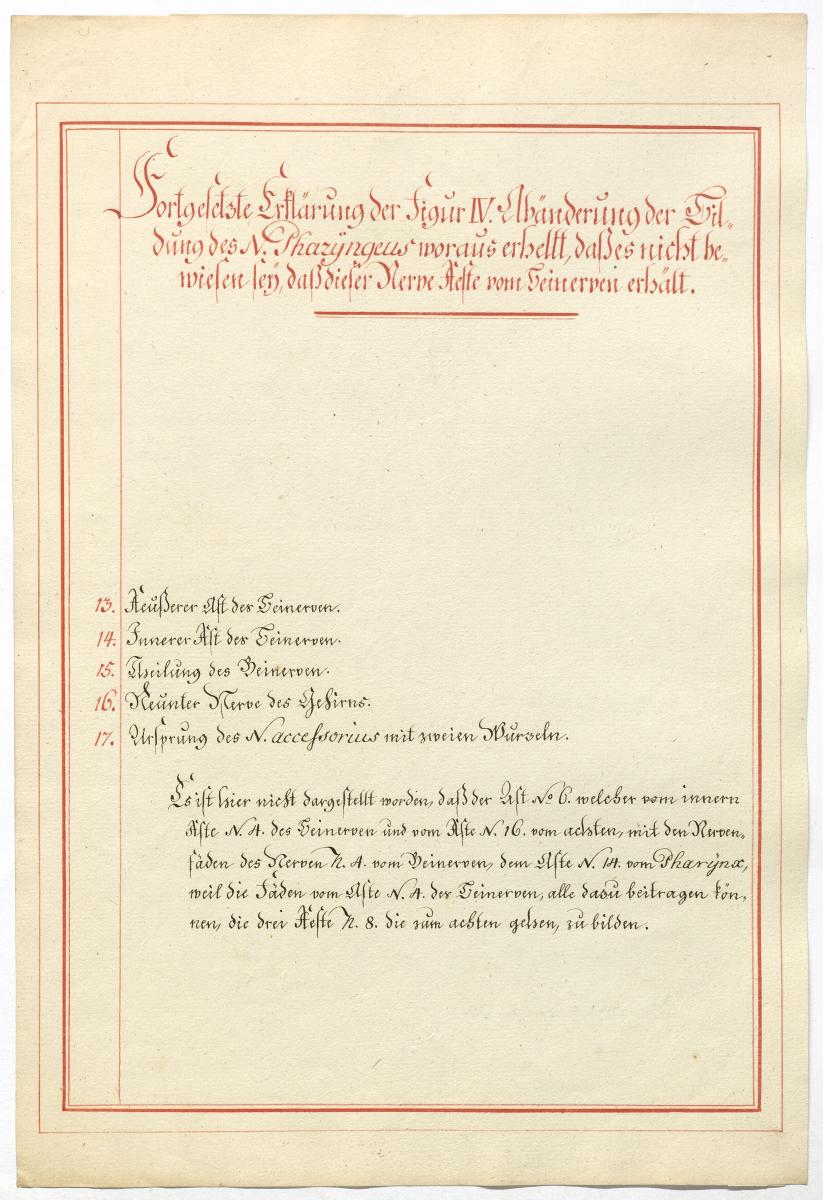 Fortgesetzte Erklärung der Figur IV. Abänderung der Bil-
dung des N. Pharÿngeus woraus erhellt, daß es nicht be-
wiesen seÿ, daß dieser Nerve Aeste vom Beinerven erhält.
13. Aeußerer Ast des Beinerven.
14. Innerer Ast des Beinerven.
15. Theilung des Beinerven.
16. Neunter Nerve des Gehirns.
17. Ursprung des N. accessorius mit zweien Wurzeln.
Es ist hier nicht dargestellt worden, daß der Ast No 6. welcher vom innern
Aste N. 4. des Beinerven und vom Aste N. 16. vom achten, mit den Nerven-
fäden des Nerven N. 4. vom Beinerven, dem Aste N. 14. vom Pharÿnx,
weil die Fäden vom Aste N. 4. des Beinerven, alle dazu beitragen kön-
nen, die drei Aeste N. 8. die zum achten gehen, zu bilden.